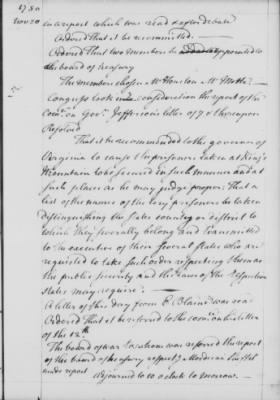 1780
Nov 20
in report which was read & after debate
Ordered that it be recommitted.
Ordered that two members be appointed to
the board of treasury
The members chosen Mr Houston Mr
Congress took into consideration the report of the
Comee on Govr Jefferson's letter of 7 & thereupon
Resolved
That it be recommended to the governor of
Virginia to cause the prisoners taken at King's
Mountain to be secured in such manner and at
such places as he may judge proper: That a
list of the names of the tory prisoners be taken
distinguishing the State county or district to
which they severally belong and transmitted
to the executives of their several States who are
requested to take such order respecting them as
the public security and the laws of the respective
states may require:
A letter of this day from E. Blaine was read
Ordered that it be referred to the comee on his letter
of the 12th
The board of war to whom was referred the report
of the board of treasury respectg
made report
Adjourned to 10 o clock to morrow.